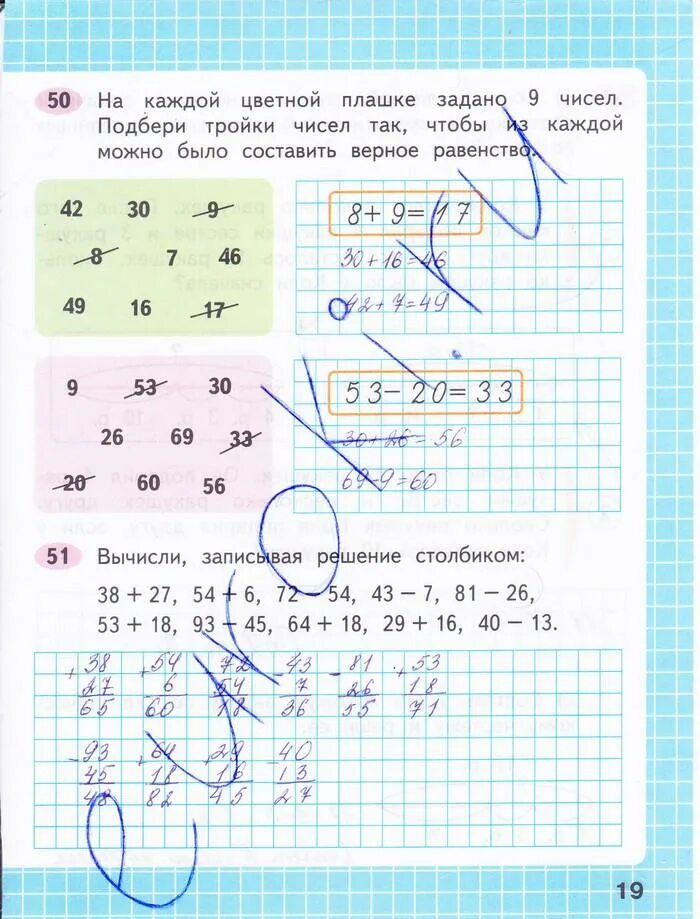 50 На каждой цветной плашке задано 9 чисел.
Подбери тройки чисел так, чтобы из каждой
можно было составить верное равенство.
42 30 9
8 7 46
49 16 17
8 + 9 = 17
30 + 16 = 46
42 + 7 = 49
9 53 30
26 69 33
20 60 56
53 - 20 = 33
30 + 26 = 56
69 - 9 = 60
51 Вычисли, записывая решение столбиком:
38 + 27, 54 + 6, 72 − 54, 43 − 7, 81 − 26,
53 + 18, 93 − 45, 64 + 18, 29 + 16, 40 − 13.
+38 +54 -72 -43 -81 +53
27 6 54 7 26 18
65 60 18 36 55 71
-93 +64 +29 -40
45 18 16 13
48 82 45 27
19